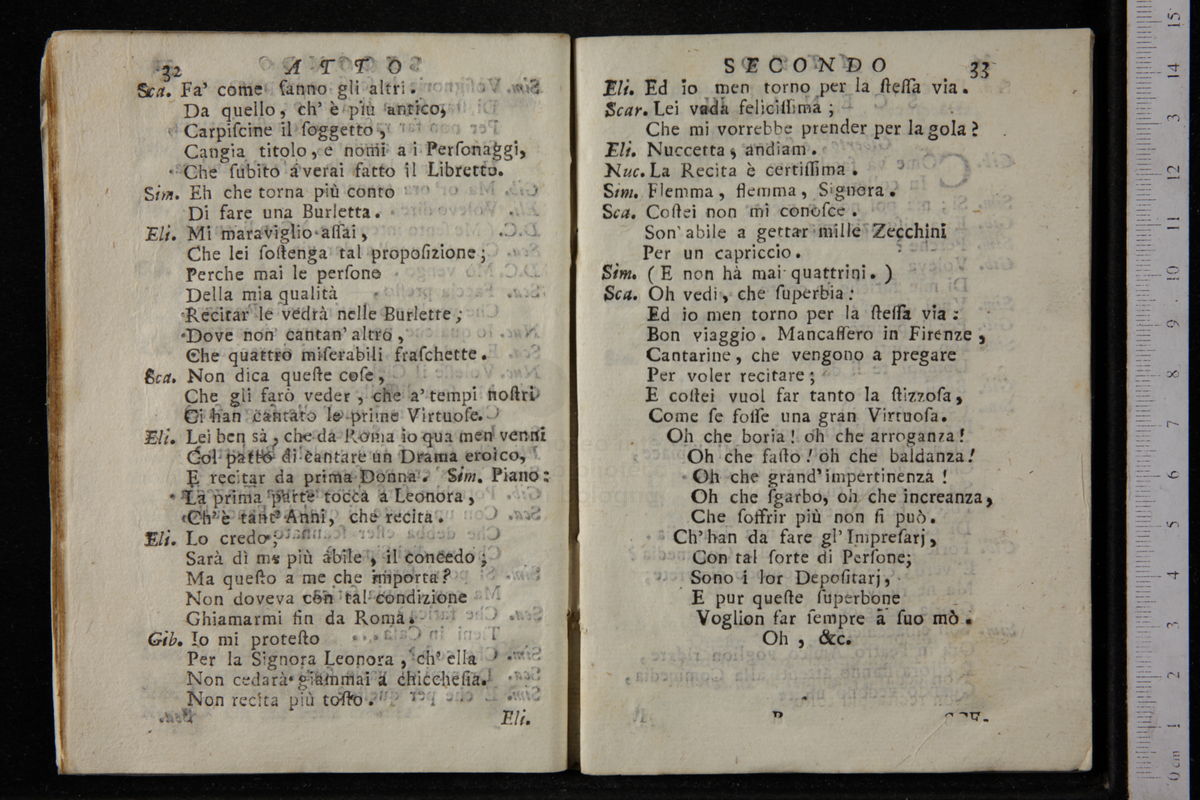 32 ATTO
Sca. Fa' come fanno gli altri.
Da quello, ch' è più antico,
Carpiſcine il ſoggetto,
Cangia titolo, e nomi a i Perſonaggi,
Che ſubito averai fatto il Libretto.
Sim. Eh che torna più conto
Di fare una Burletta.
Eli. Mi maraviglio aſſai,
Che lei ſoſtenga tal propoſizione;
Perche mai le perſone
Della mia qualità
Recitar le vedrà nelle Burlette;
Dove non cantan' altro,
Che quattro miſerabili fraſchette.
Sca. Non dica queſte coſe,
Che gli farò veder, che a' tempi noſtri
Ci han cantato le prime Virtuoſe.
Eli. Lei ben sà, che da Roma io qua men venni
Col patto di cantare un Drama eroico,
E recitar da prima Donna. Sim. Piano:
La prima parte tocca a Leonora,
Ch' è tant' Anni, che recita.
Eli. Lo credo;
Sarà dì me più abile, il concedo;
Ma queſto a me che importa?
Non doveva con tal condizione
Ghiamarmi fin da Roma.
Gib. Io mi proteſto
Per la Signora Leonora, ch' ella
Non cedarà giammai a chiccheſia.
Non recita più toſto.
Eli.
SECONDO 33
Eli. Ed io men torno per la ſteſſa via.
Scar. Lei vada feliciſſima;
Che mi vorrebbe prender per la gola?
Eli. Nuccetta, andiam.
Nuc. La Recita è certiſſima.
Sim. Flemma, flemma, Signora.
Sca. Coſtei non mi conoſce.
Son' abile a gettar mille Zecchini
Per un capriccio.
Sim. (E non hà mai quattrini.)
Sca. Oh vedi, che ſuperbia:
Ed io men torno per la ſteſſa via:
Bon viaggio. Mancaſſero in Firenze,
Cantarine, che vengono a pregare
Per voler recitare;
E coſtei vuol far tanto la ſtizzoſa,
Come ſe foſſe una gran Virtuoſa.
Oh che boria! oh che arroganza!
Oh che faſto! oh che baldanza!
Oh che grand' impertinenza!
Oh che ſgarbo, oh che increanza,
Che ſoffrir più non ſi può.
Ch' han da fare gl' Impreſarj,
Con tal ſorte di Perſone;
Sono i lor Depoſitarj,
E pur queſte ſuperbone
Voglion far ſempre à ſuo mò.
Oh, &c.